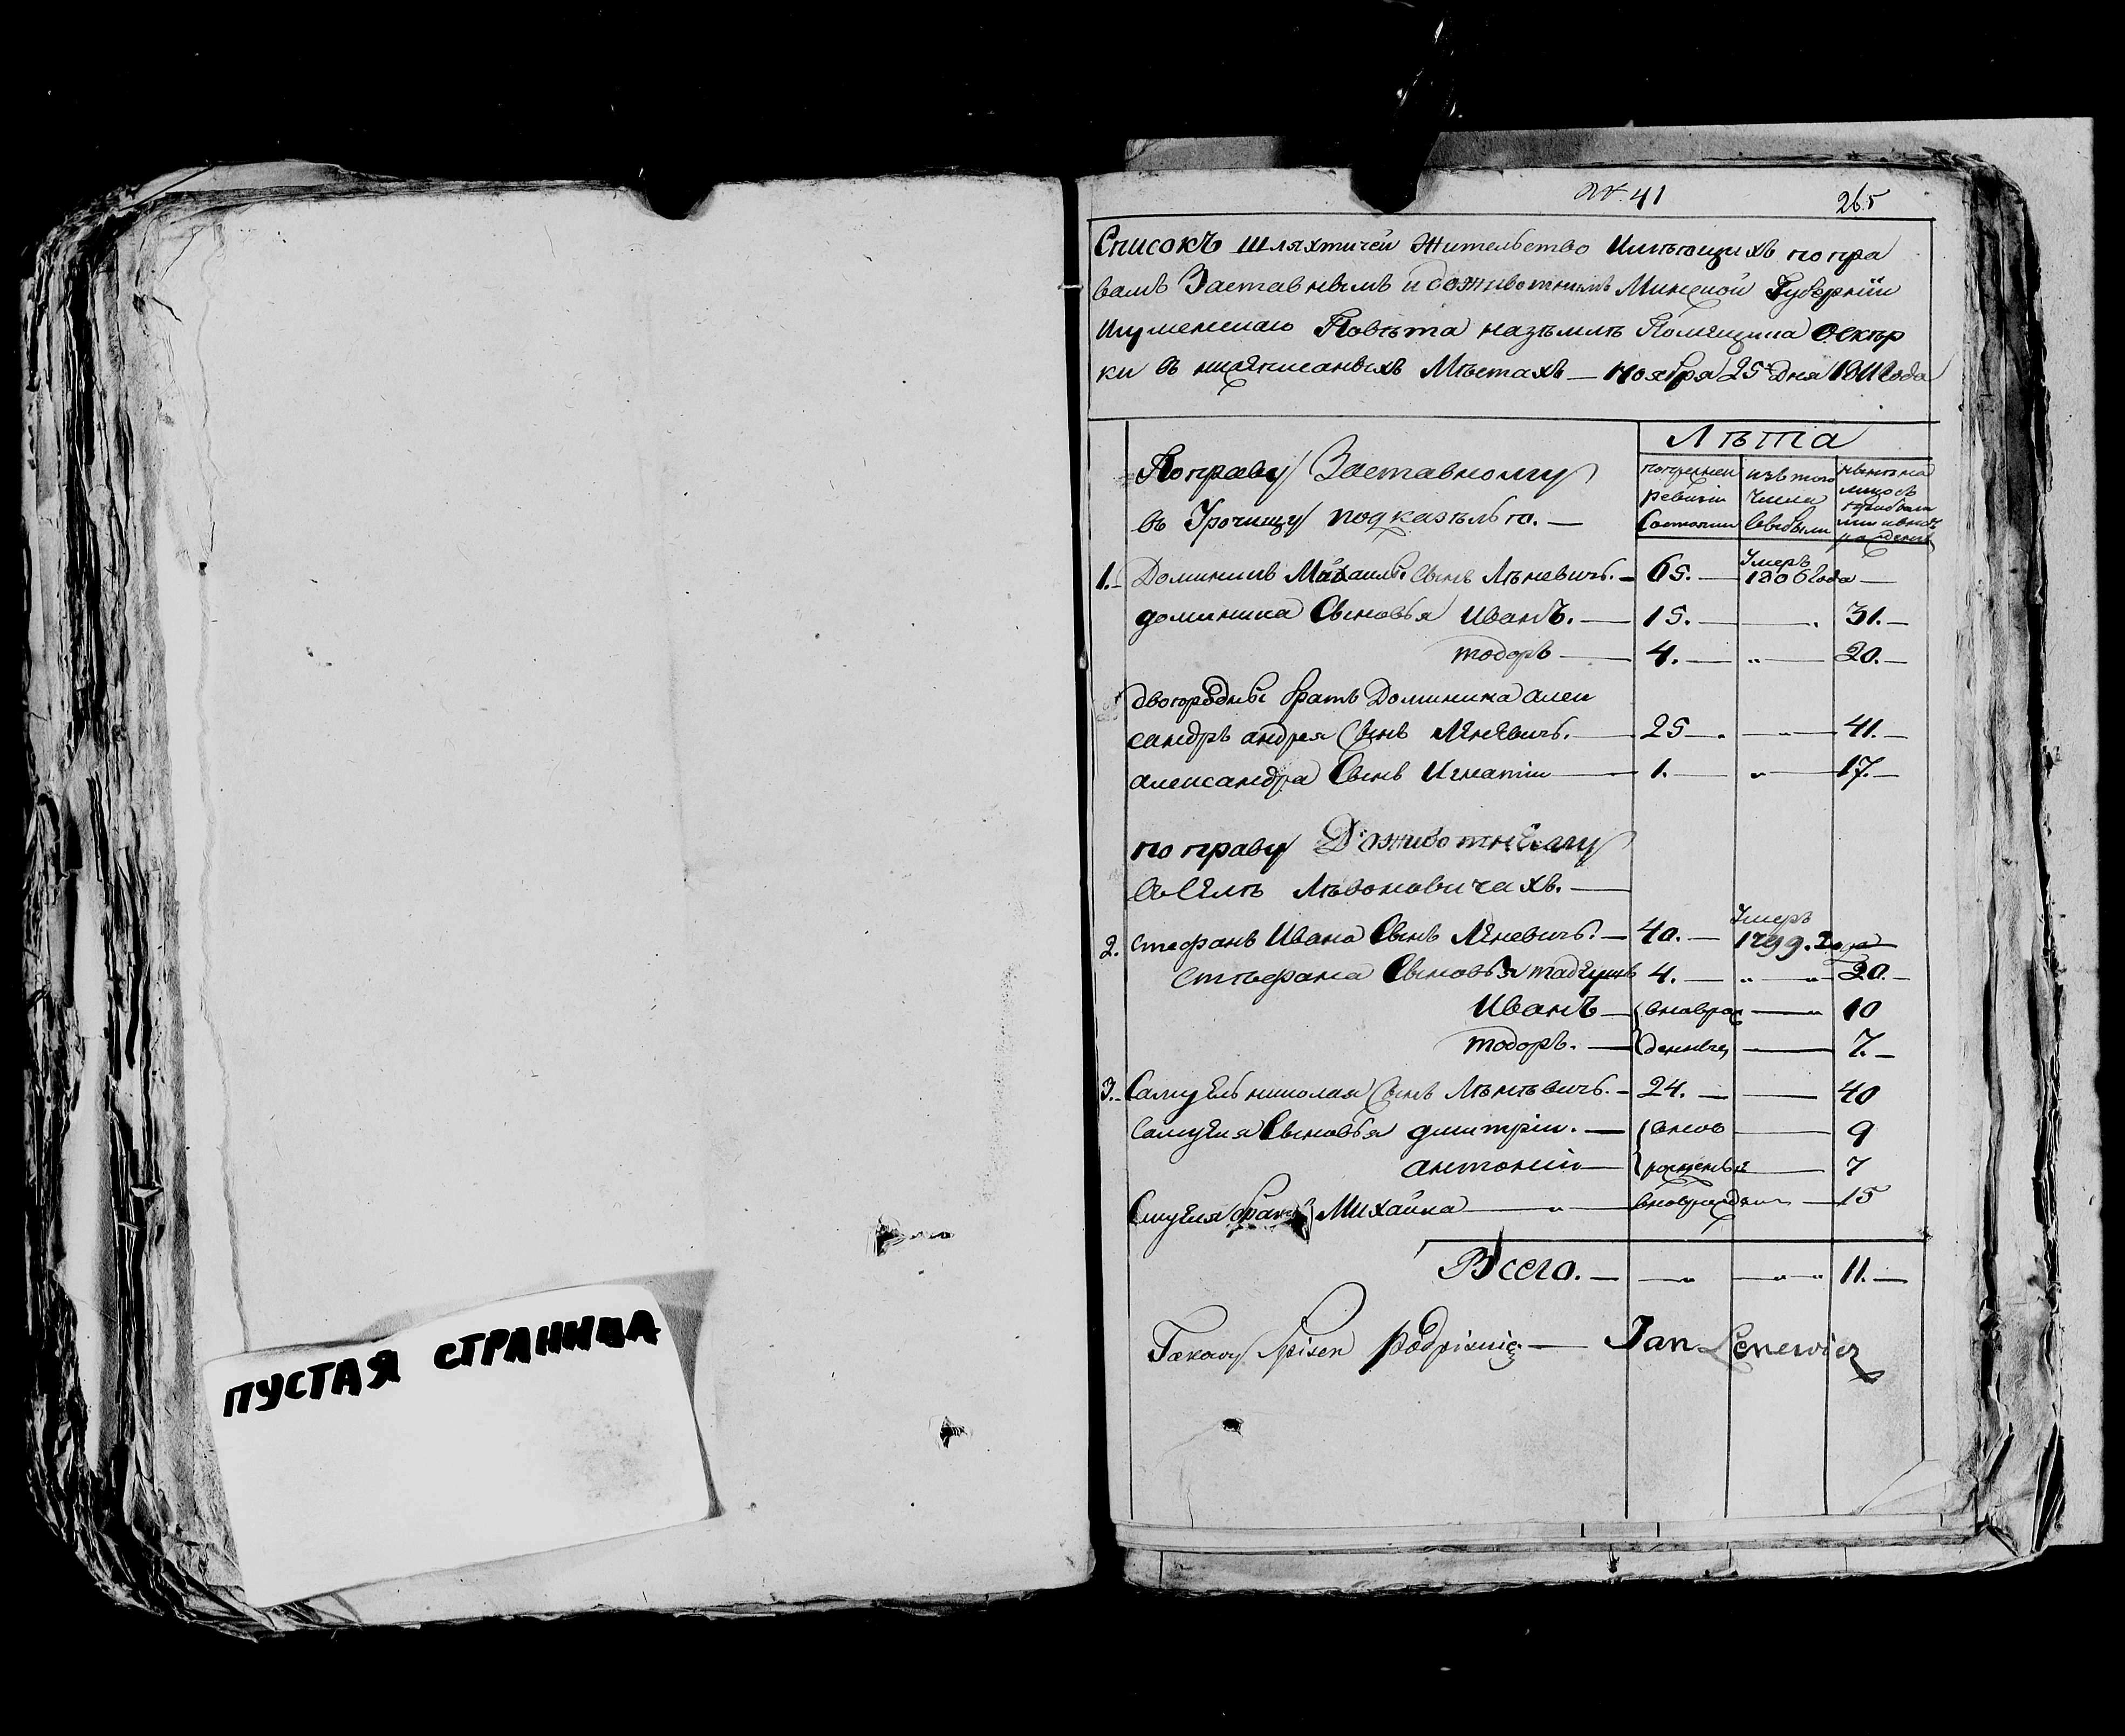 ПУСТАЯ СТРАНИЦА
№ 41
265
Списокъ шляхтичей жительство имѣющихъ по пра
вамъ Заставнымъ и доживотнымъ Минской Губерніи
Игуменскаго Повѣта назѣмлѣ Помѣщика Осктѣр
ки въ нижѣписаныхъ Мѣстахъ — Ноября 25 дня 1811 года
Лѣта
По праву Заставному
въ Урочищу подказѣльѣ. —
по прежней ревизіи Состояли
изъ того числа выбыли
нынѣ на лицо съ
1. Доминикъ Михаила Сынъ Лѣневичъ. — 65. — Умеръ 1806 года —
доминика Сыновья Иванъ. — 15. — 31. —
тодоръ — 4. — „ — 20. —
двоюродный братъ Доминика алек
сандръ андрея Сынъ Лѣнѣвичъ. — 25 — „ — 41. —
александра Сынъ Игнатіи — 1. — „ — 17. —
по праву Доживотному
въ Селѣ Лѣвоновичахъ. —
2. Стефанъ Ивана Сынъ Лѣневичъ. — 40. — Умеръ 1799. года
Стѣфана Сыновья тадеушъ 4. — „ — „ — 20. —
Иванъ — вновьрож — „ 10
тодоръ. — денные — 7. —
3. Самуель николая Сынъ Лѣнѣвичъ. — 24. — — 40
Самуеля Сыновья дмитріи. — вновь — 9
антоніи — рожденые — 7
Самуеля братъ Михайла — „ — вноврожден — 15
Всего. — — „ — „ — „ 11. —
Takowy Spisek podpisuię — Jan Lenewicz